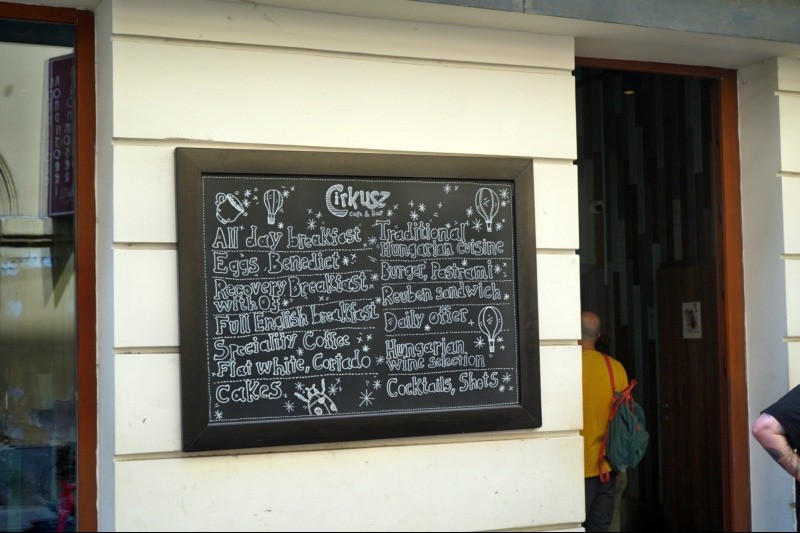 Cirkusz
Cafe & Bar
All day breakfast
Eggs Benedict
Recovery Breakfast
with OJ
Full English breakfast
Speciality Coffee
Flat white, Cortado
Cakes
Traditional
Hungarian cuisine
Burger, Pastrami
Reuben sandwich
Daily offer
Hungarian
wine selection
Cocktails, Shots